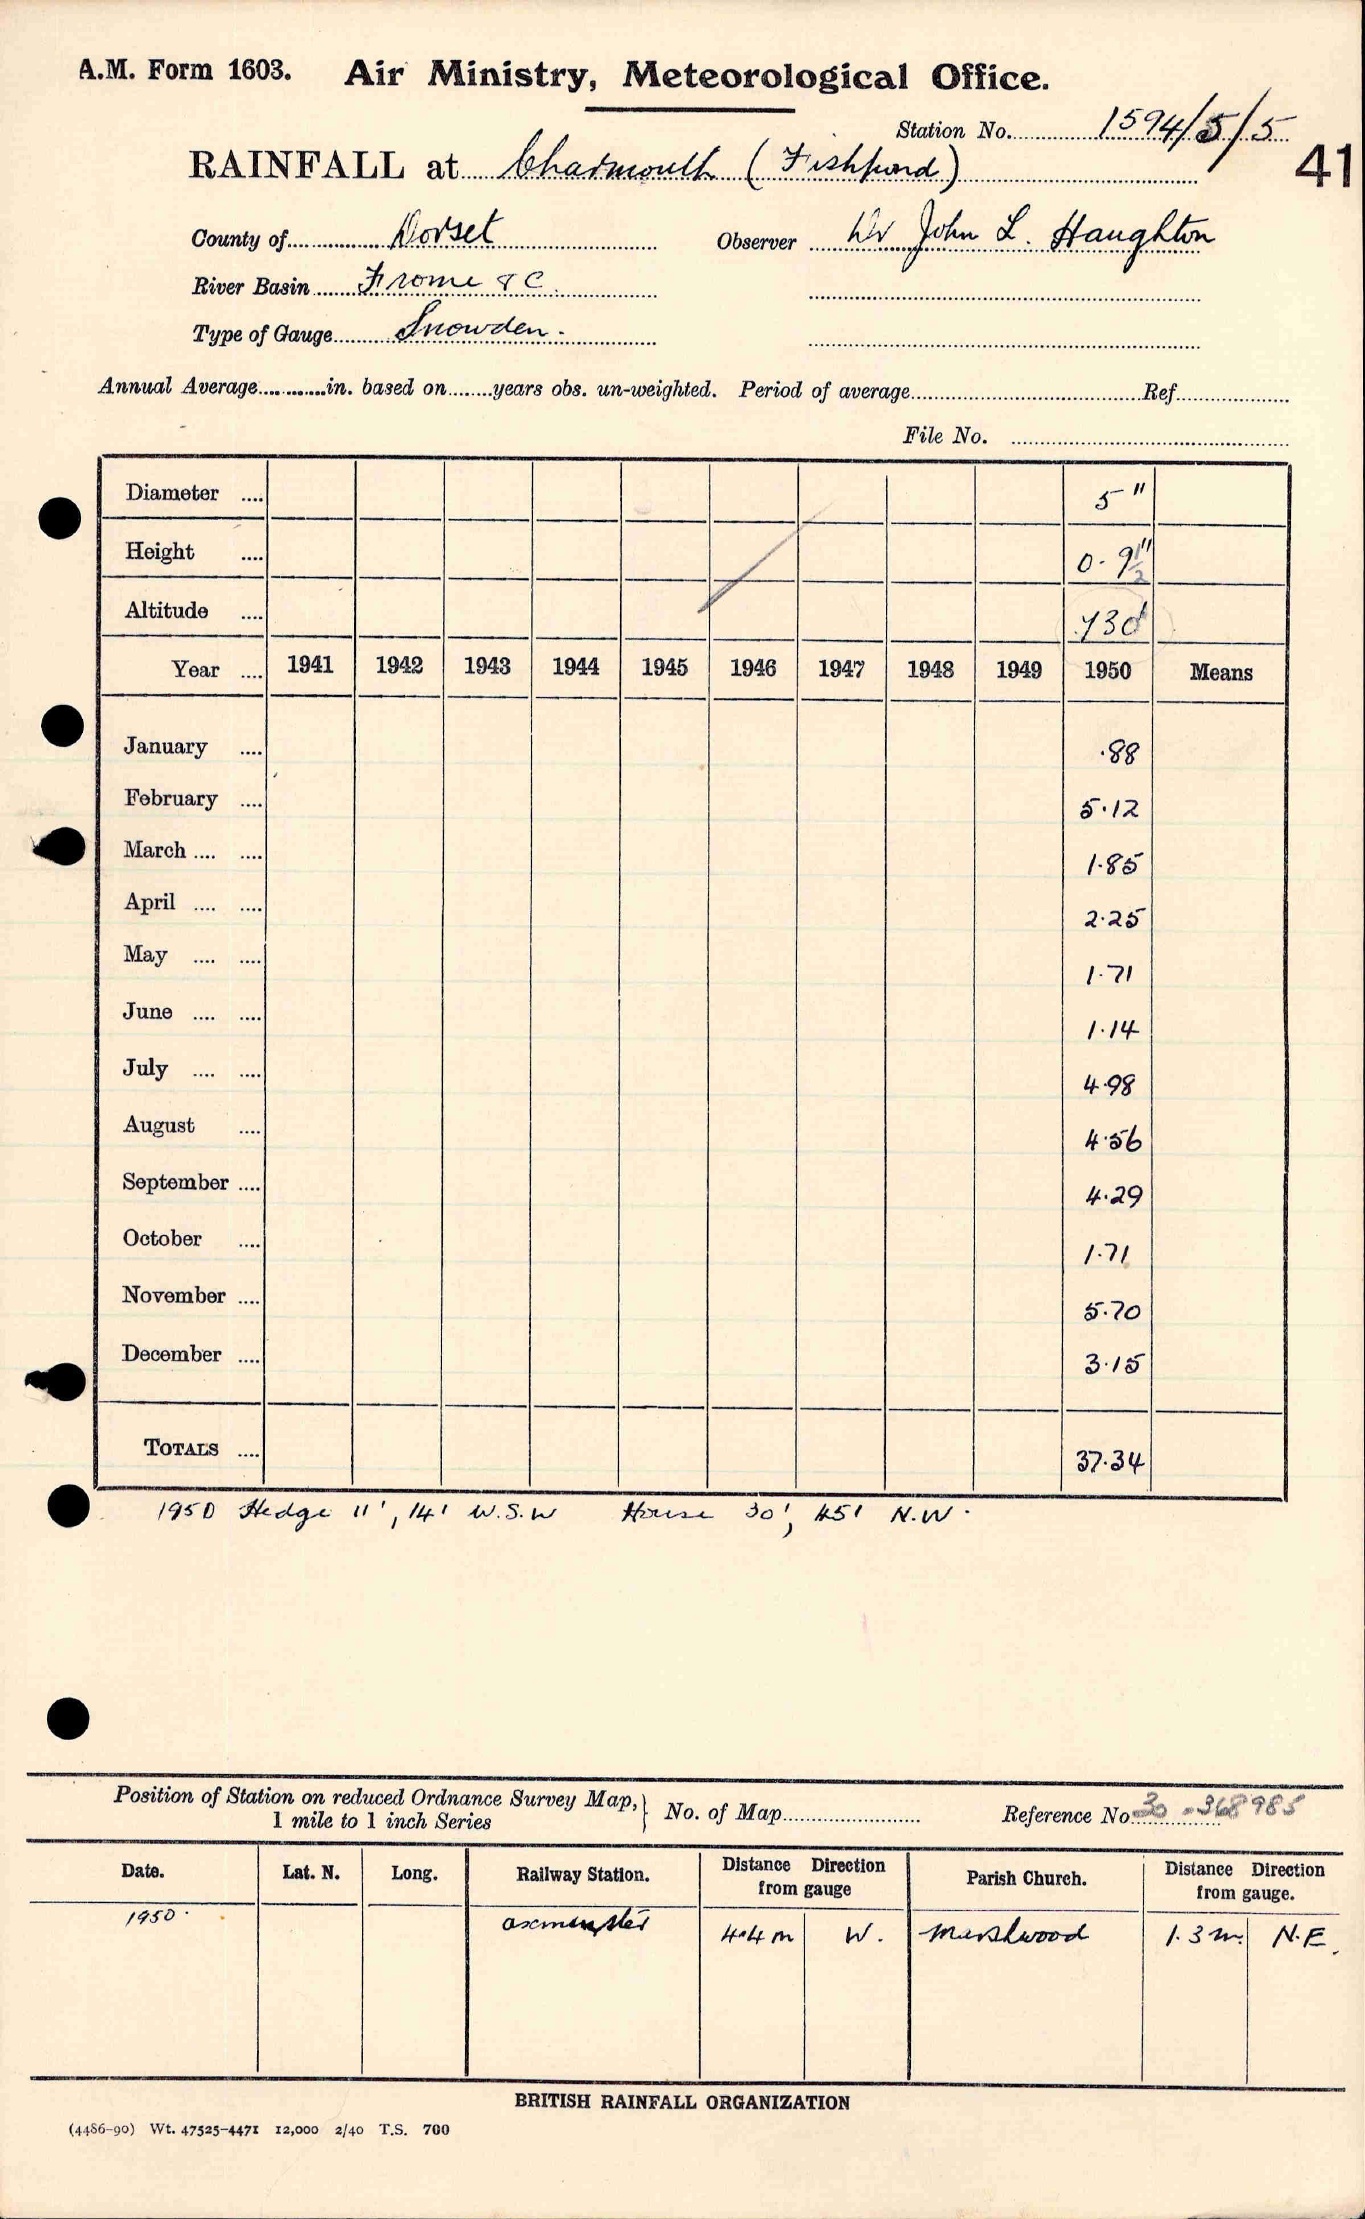 A.M. Form 1603. Air Ministry, Meteorological Office.
Station No. 1594/5/5
41
RAINFALL at Charmouth (Fishpond)
County of Dorset Observer Dr John L. Haughton
River Basin Frome &C.
Type of Gauge Snowden.
Annual Average in. based on years obs. un-weighted. Period of average Ref
File No.
Diameter 5"
Height 0.9½"
Altitude 730'
Year 1941 1942 1943 1944 1945 1946 1947 1948 1949 1950 Means
January .88
February 5.12
March 1.85
April 2.25
May 1.71
June 1.14
July 4.98
August 4.56
September 4.29
October 1.71
November 5.70
December 3.15
TOTALS 37.34
1950 Hedge 11', 14' W.S.W House 30', 45' N.W.
Position of Station on reduced Ordnance Survey Map, 1 mile to 1 inch Series } No. of Map Reference No. 30 . 368985
Date. Lat. N. Long. Railway Station. Distance Direction from gauge Parish Church. Distance Direction from gauge.
1950. Axminster 4.4 m W. Marshwood 1.3 m. N.E.
BRITISH RAINFALL ORGANIZATION
(4486-90) Wt. 47525-4471 12,000 2/40 T.S. 700